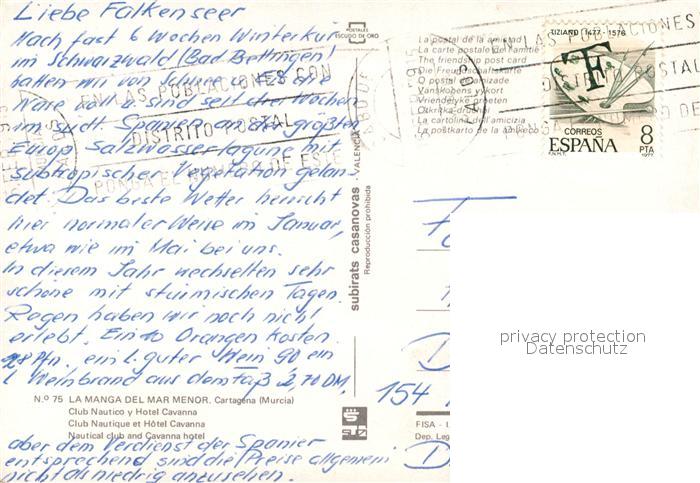 Liebe Falkenseer
Nach fast 6 Wochen Winterkur
im Schwarzwald (Bad Bellingen)
hatten wir von Schnee u. Kälte die
Nase voll u. sind seit drei Wochen
im südl Spanien an der größten
Europ. Salzwasserlagune mit
subtropischer Vegetation gelan-
det. Das beste Wetter herrscht
hier normaler Weise im Januar,
etwa wie im Mai bei uns.
In diesem Jahr wechselten sehr
schöne mit stürmischen Tagen.
Regen haben wir noch nicht
erlebt. Ein Orangen kosten
28 Pfn. ein L. guter Wein 90 ein
L Weinbrand aus dem Faß 2,70 DM,
Nº 75 LA MANGA DEL MAR MENOR. Cartagena (Murcia)
Club Nautico y Hotel Cavanna
Club Nautique et Hôtel Cavanna
Nautical club and Cavanna hotel
aber dem Verdienst der Spanier
entsprechend sind die Preise allgemein
nicht als niedrig anzusehen.
POSTALES
ESCUDO DE ORO
subirats casanovas - VALENCIA
Reproducción prohibida
EN LAS POBLACIONES CON
DISTRITO POSTAL
PONGA EL NUMERO DE ESTE
La postal de la amistad
La carte postale de l'amitié
The friendship post card
Die Freundschaftskarte
O postal da amizade
Vänskapens vykort
Vriendelijke groeten
Otkritka drujbi
La cartolina dell'amicizia
La postkarto de la amikeco
EN LAS POBLACIONES
DISTRITO POSTAL
TIZIANO 1477 - 1576
F
CORREOS
ESPAÑA
8
PTA
F.N.M.T.
1977
154
FISA - I.
Dep. Leg
privacy protection
Datenschutz